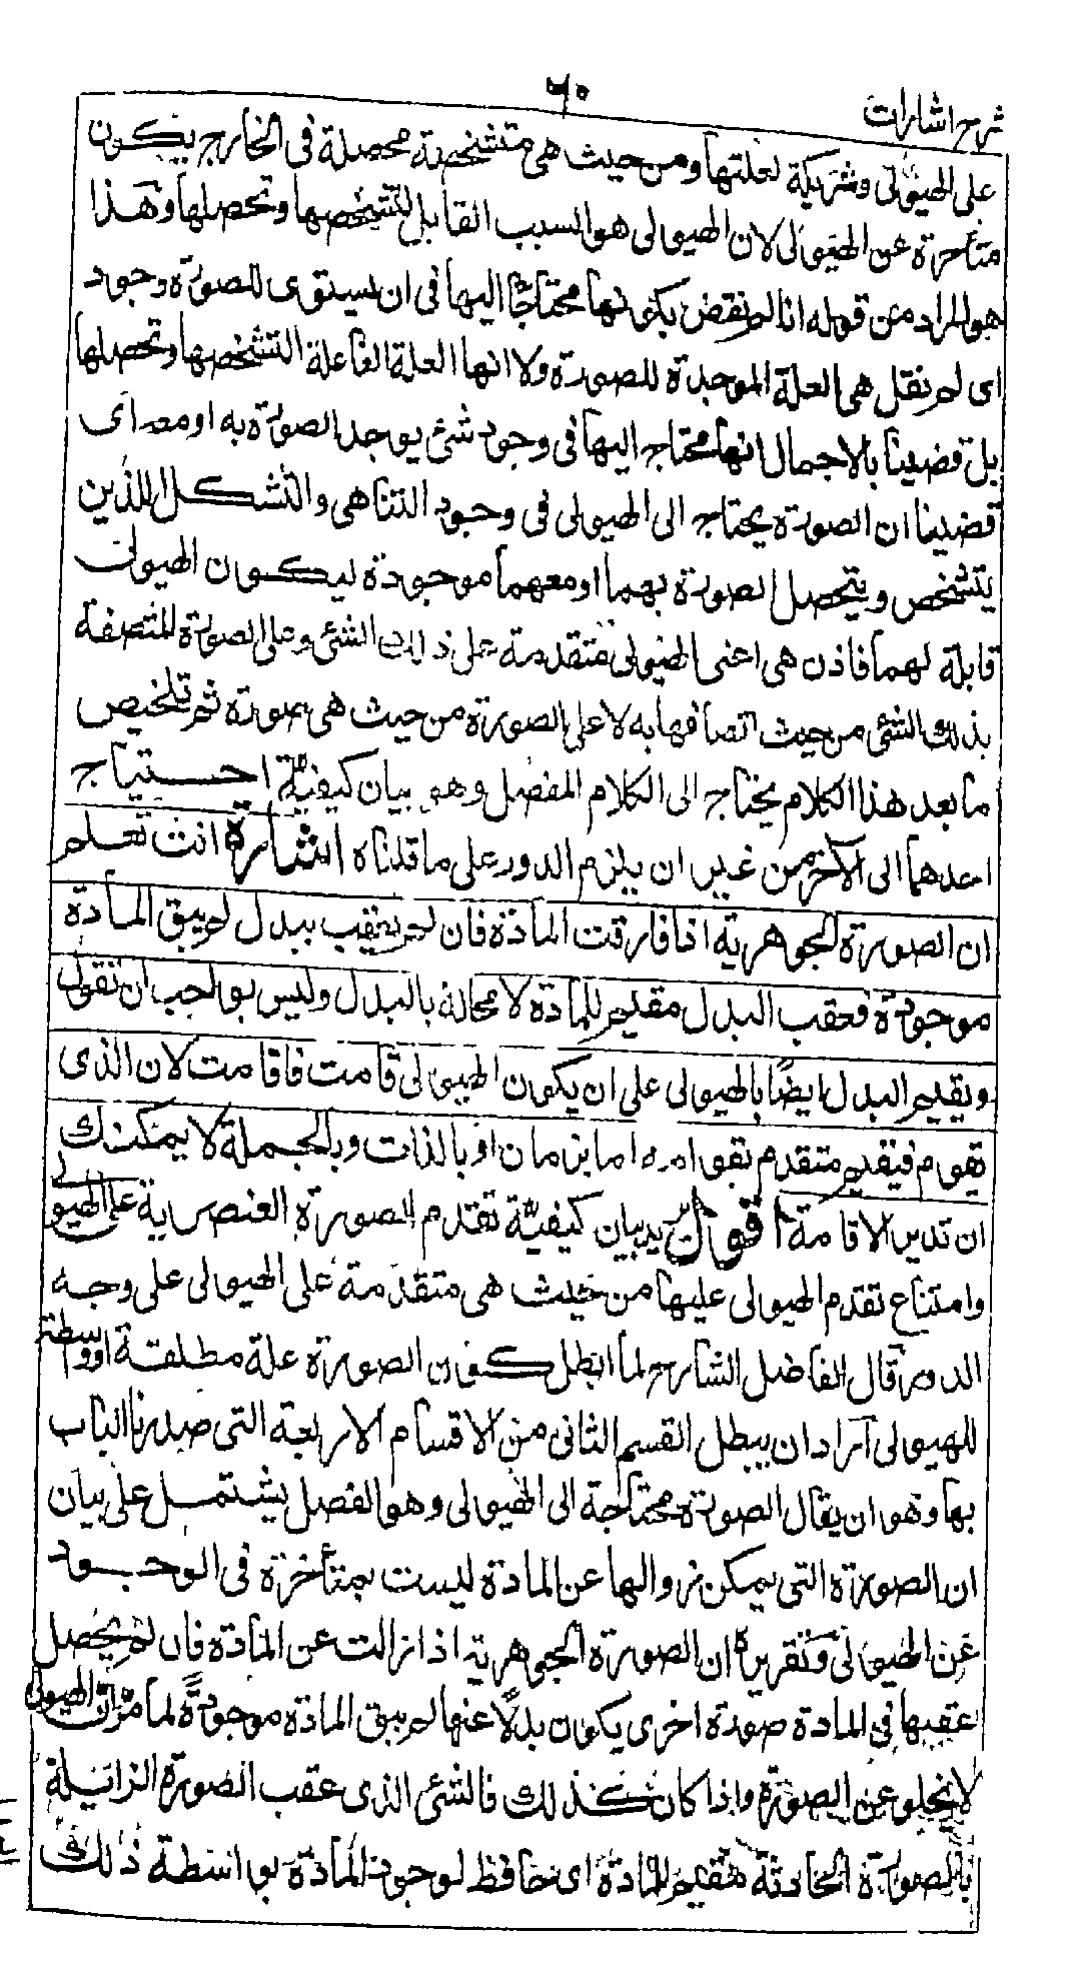 ٦٠
شرح اشارات
على الهيولى وشريكة لعلتها ومن حيث هى متشخصة محصلة فى الخارج يكون
متأخرة عن الهيولى لان الهيولى هو السبب القابل لتشخصها وتحصلها وهذا
هو المراد من قوله انا لم نقض بكونها محتاجًا اليها فى ان يستوى للصورة وجود
اى لم نقل هى العلة الموجدة للصورة ولا انها العلة الفاعلة التشخصها وتحصلها
بل قضينا بالاجمال انها محتاج اليها فى وجود شئ يوجد الصورة به او معه اى
قضينا ان الصورة يحتاج الى الهيولى فى وجود التناهى والتشكل اللذين
يتشخص ويتحصل الصورة بهما او معهما موجودة ليكون الهيولى
قابلة لهما فاذن هى اعنى الهيولى متقدمة على ذلك الشئ وعلى الصورة المتصفة
بذلك الشئ من حيث اتصافها به لا على الصورة من حيث هى صورة ثم تلخيص
ما بعد هذا الكلام يحتاج الى الكلام المفصل وهو بيان كيفية احتياج
احدهما الى الآخر من غير ان يلزم الدور على ما قلناه اشارة انت تعلم
ان الصورة الجوهرية اذا فارقت المادة فان لم يعقب ببدل لم يبق المادة
موجودة فمعقب البدل مقيم للمادة لا محالة بالبدل وليس بواجب ان تقول
ويقيم البدل ايضًا بالهيولى على ان يكون الهيولى قامت فاقامت لان الذى
يقوم فيقيم متقدم بقوامه اما بزمان او بالذات وبالجملة لا يمكنك
ان تدير الاقامة اقول يريد بيان كيفية تقدم الصورة العنصرية على الهيولى
وامتناع تقدم الهيولى عليها من حيث هى متقدمة على الهيولى على وجه
الدور قال الفاضل الشارح لما ابطل كون الصورة علة مطلقة او واسطة
للهيولى اراد ان يبطل القسم الثانى من الاقسام الاربعة التى صدرنا الباب
بها وهو ان يقال الصورة محتاجة الى الهيولى وهو الفصل يشتمل على بيان
ان الصورة التى يمكن زوالها عن المادة ليست بمتأخرة فى الوجود
عن الهيولى وتقريره ان الصورة الجوهرية اذا زالت عن المادة فان لم يحصل
عقيبها فى المادة صورة اخرى يكون بدلًا عنها لم يبق المادة موجودة لما مر ان الهيولى
لا يخلو عن الصورة واذا كان كذلك فالشئ الذى عقب الصورة الزائلة
بالصورة الحادثة مقيم للمادة اى حافظ لوجود المادة بواسطة ذلك